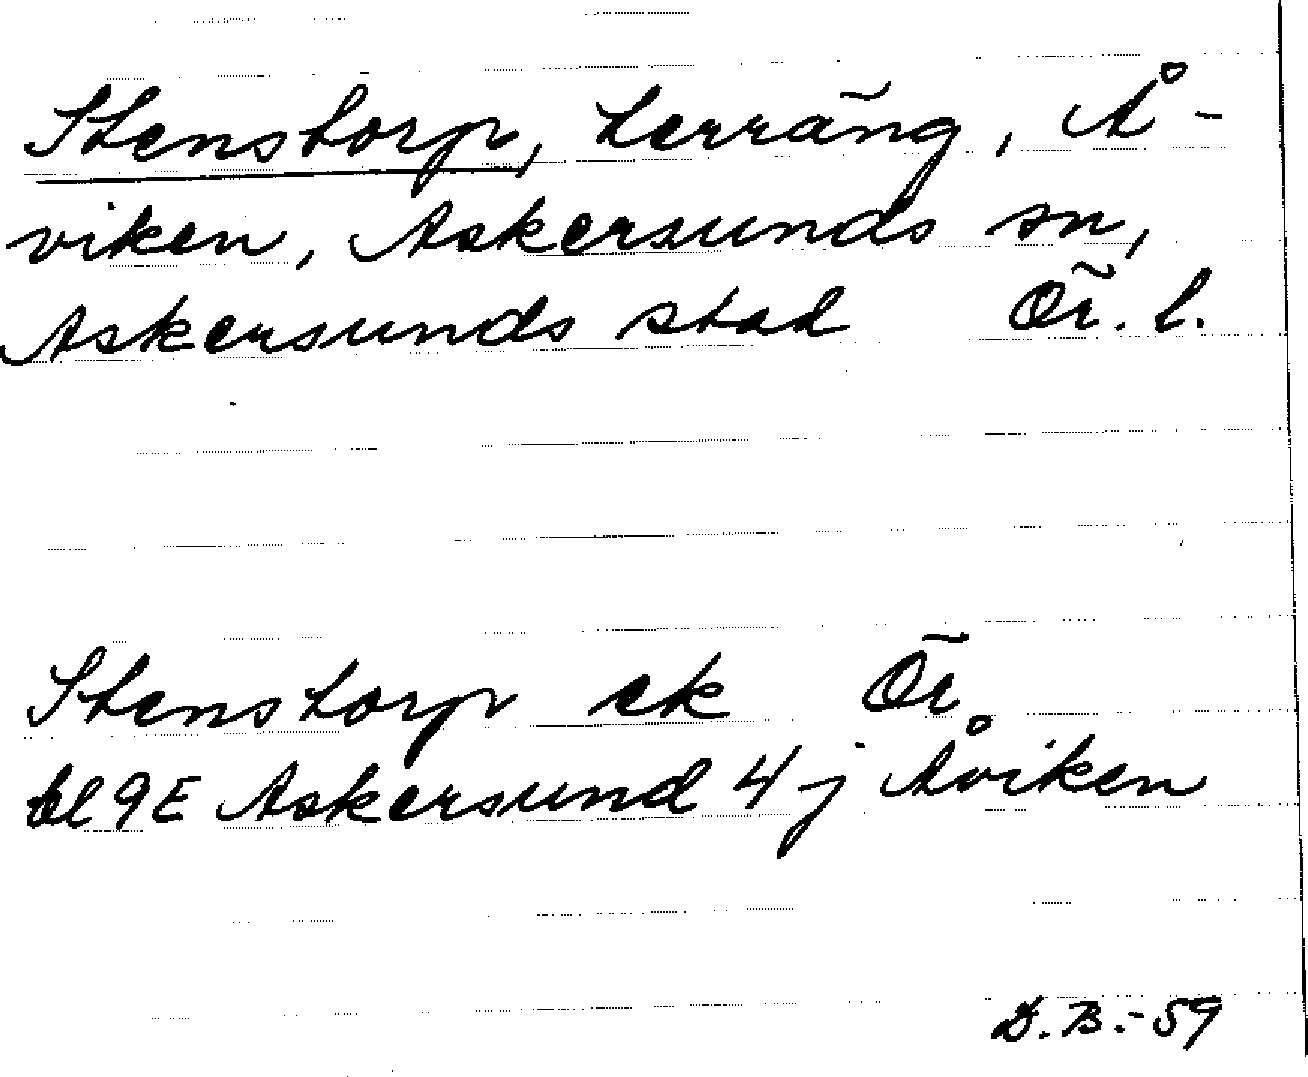 Stenstorp, terräng, Å-
viken, Askersunds sn,
Askersunds stad Ör. l.
Stenstorp ek Ör
bl 9E Askersund 4 j Åviken
D.B.-59